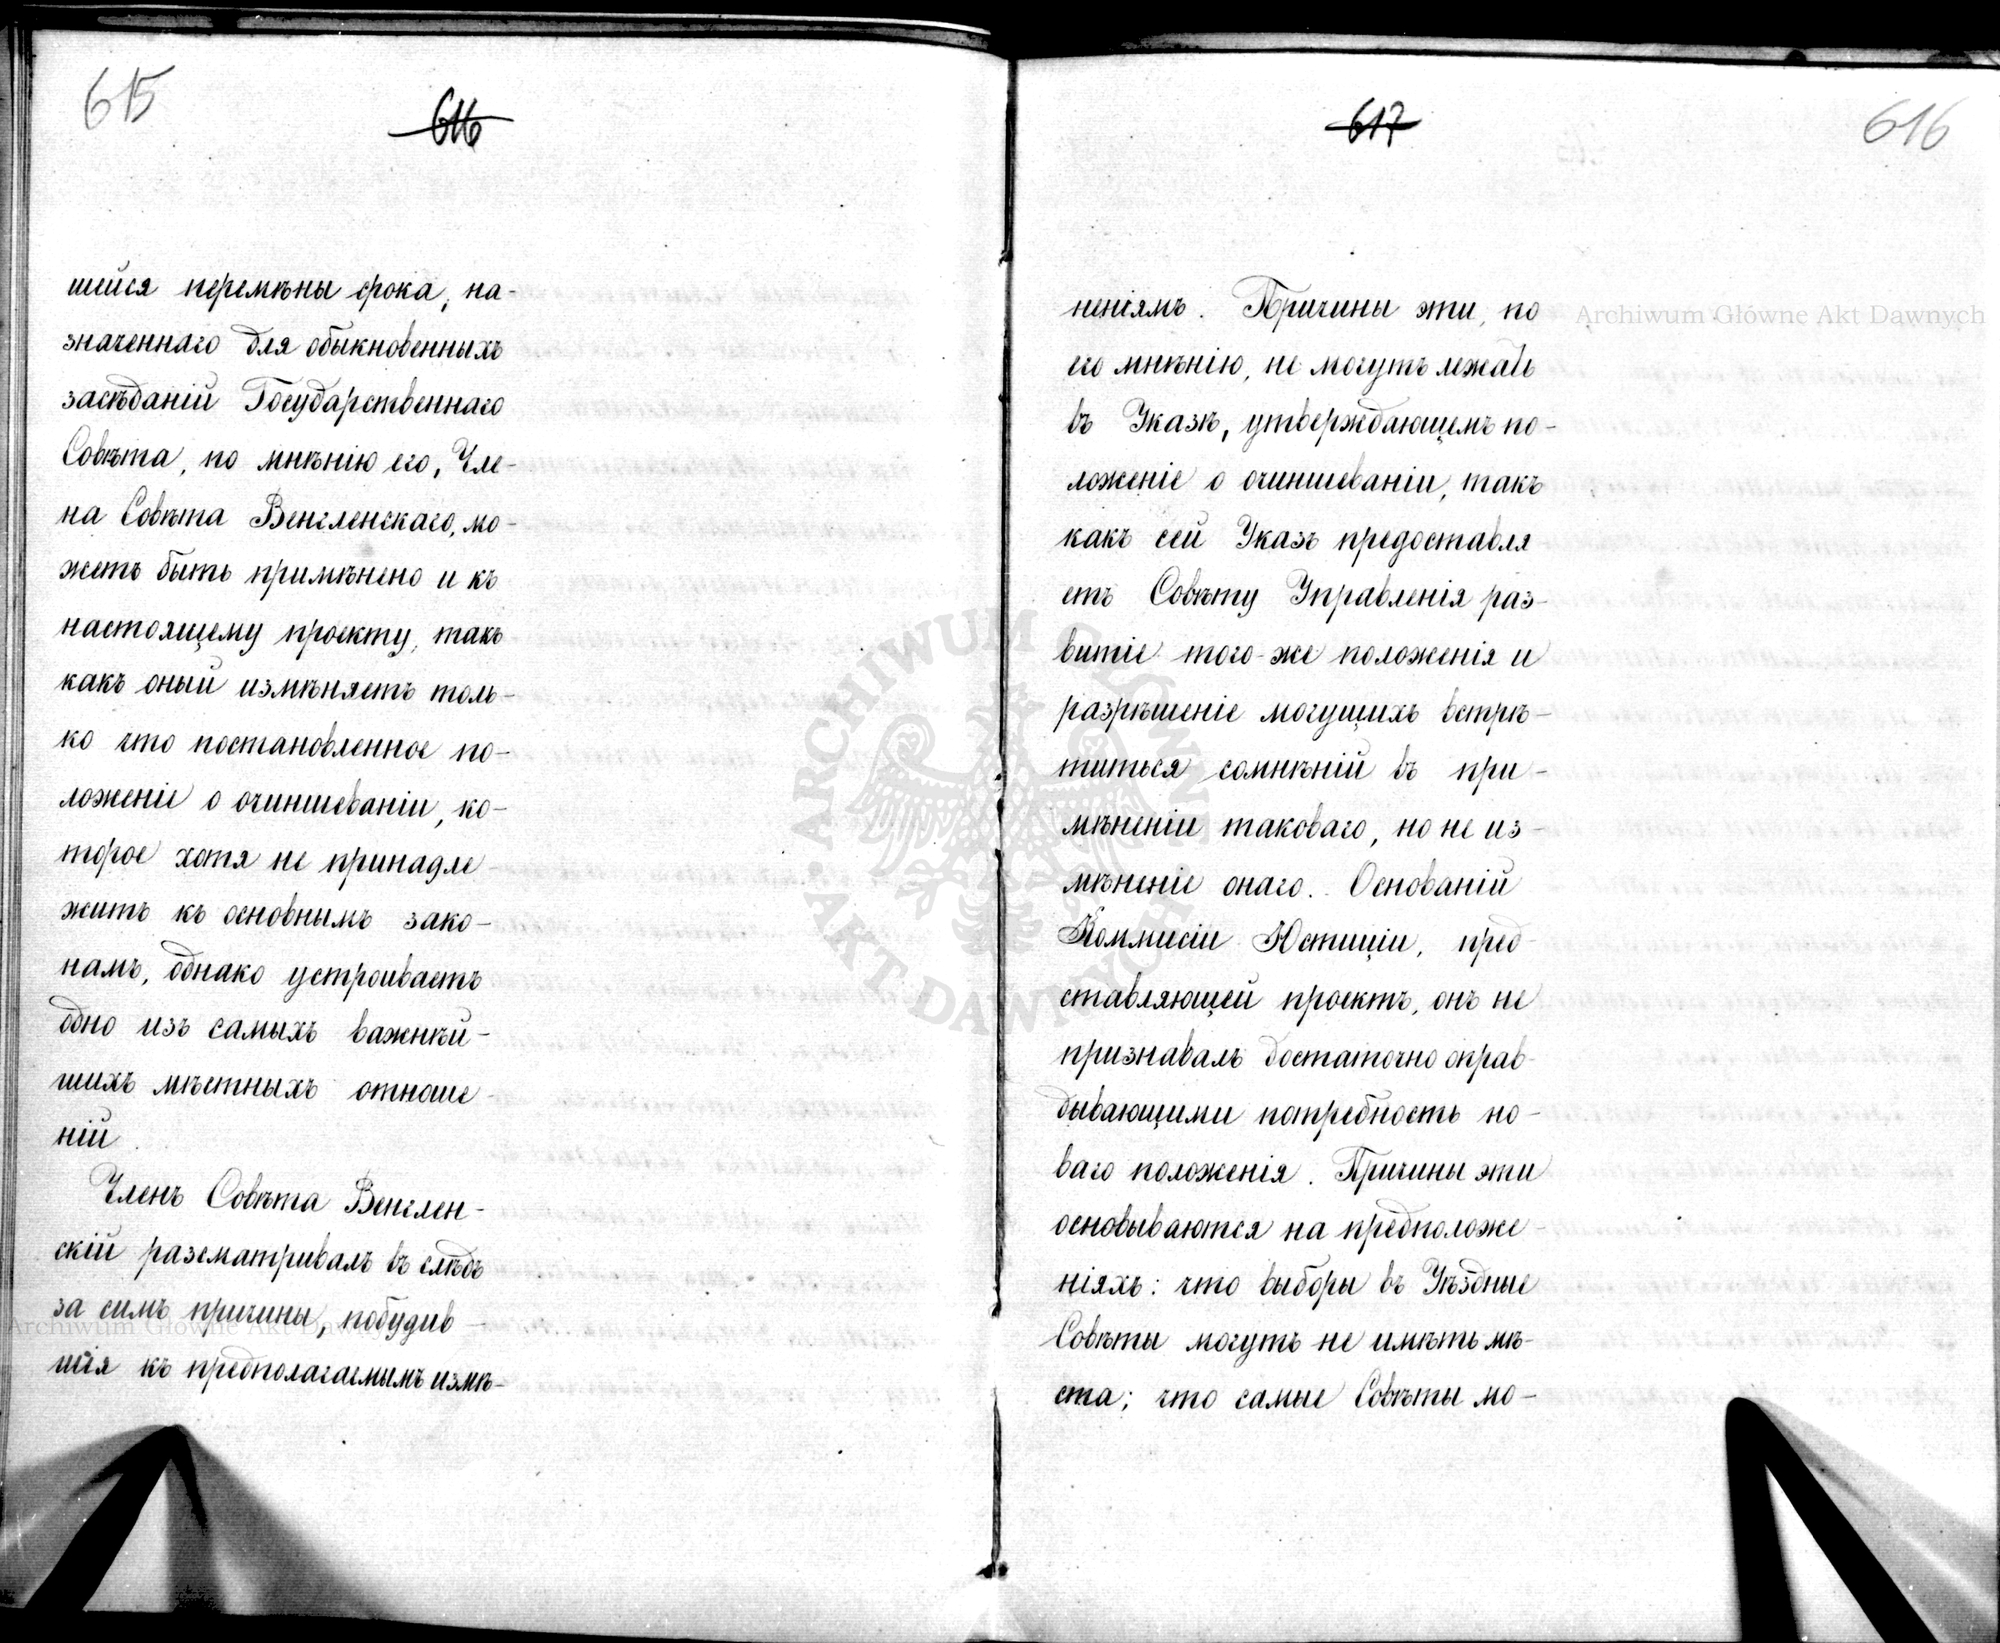 615
616
шейся перемѣны срока, на-
значеннаго для обыкновенныхъ
засѣданій Государственнаго
Совѣта, по мнѣнію его, Чле-
на Совѣта Венгленскаго, мо-
жетъ быть примѣнено и къ
настоящему проекту, такъ
какъ оный измѣняетъ толь-
ко что постановленное по-
ложеніе о очиншеваніи, ко-
торое хотя не принадле-
житъ къ основнымъ зако-
намъ, однако устроиваетъ
одно изъ самыхъ важнѣй-
шихъ мѣстныхъ отноше-
ній.
Членъ Совѣта Венглен-
скій разсматривалъ въ слѣдъ
за симъ причины, побудив-
шія къ предполагаемымъ измѣ-
617
616
неніямъ. Причины эти, по
его мнѣнію, не могутъ лежать
въ Указѣ, утверждающемъ по-
ложеніе о очиншеваніи, такъ
какъ сей Указъ предоставля
етъ Совѣту Управленія раз-
витіе того-же положенія и
разрѣшеніе могущихъ встрѣ-
титься сомнѣній въ при-
мѣненіи таковаго, но не из-
мѣненіе онаго. Основаній
Коммисіи Юстиціи, пред-
ставляющей проектъ, онъ не
признавалъ достаточно оправ-
дывающими потребность но-
ваго положенія. Причины эти
основываются на предположе-
ніяхъ: что выборы въ Уѣздные
Совѣты могутъ не имѣть мѣ-
ста; что самые Совѣты мо-
Archiwum Główne Akt Dawnych
ARCHIWUM GŁÓWNE AKT DAWNYCH
Archiwum Główne Akt